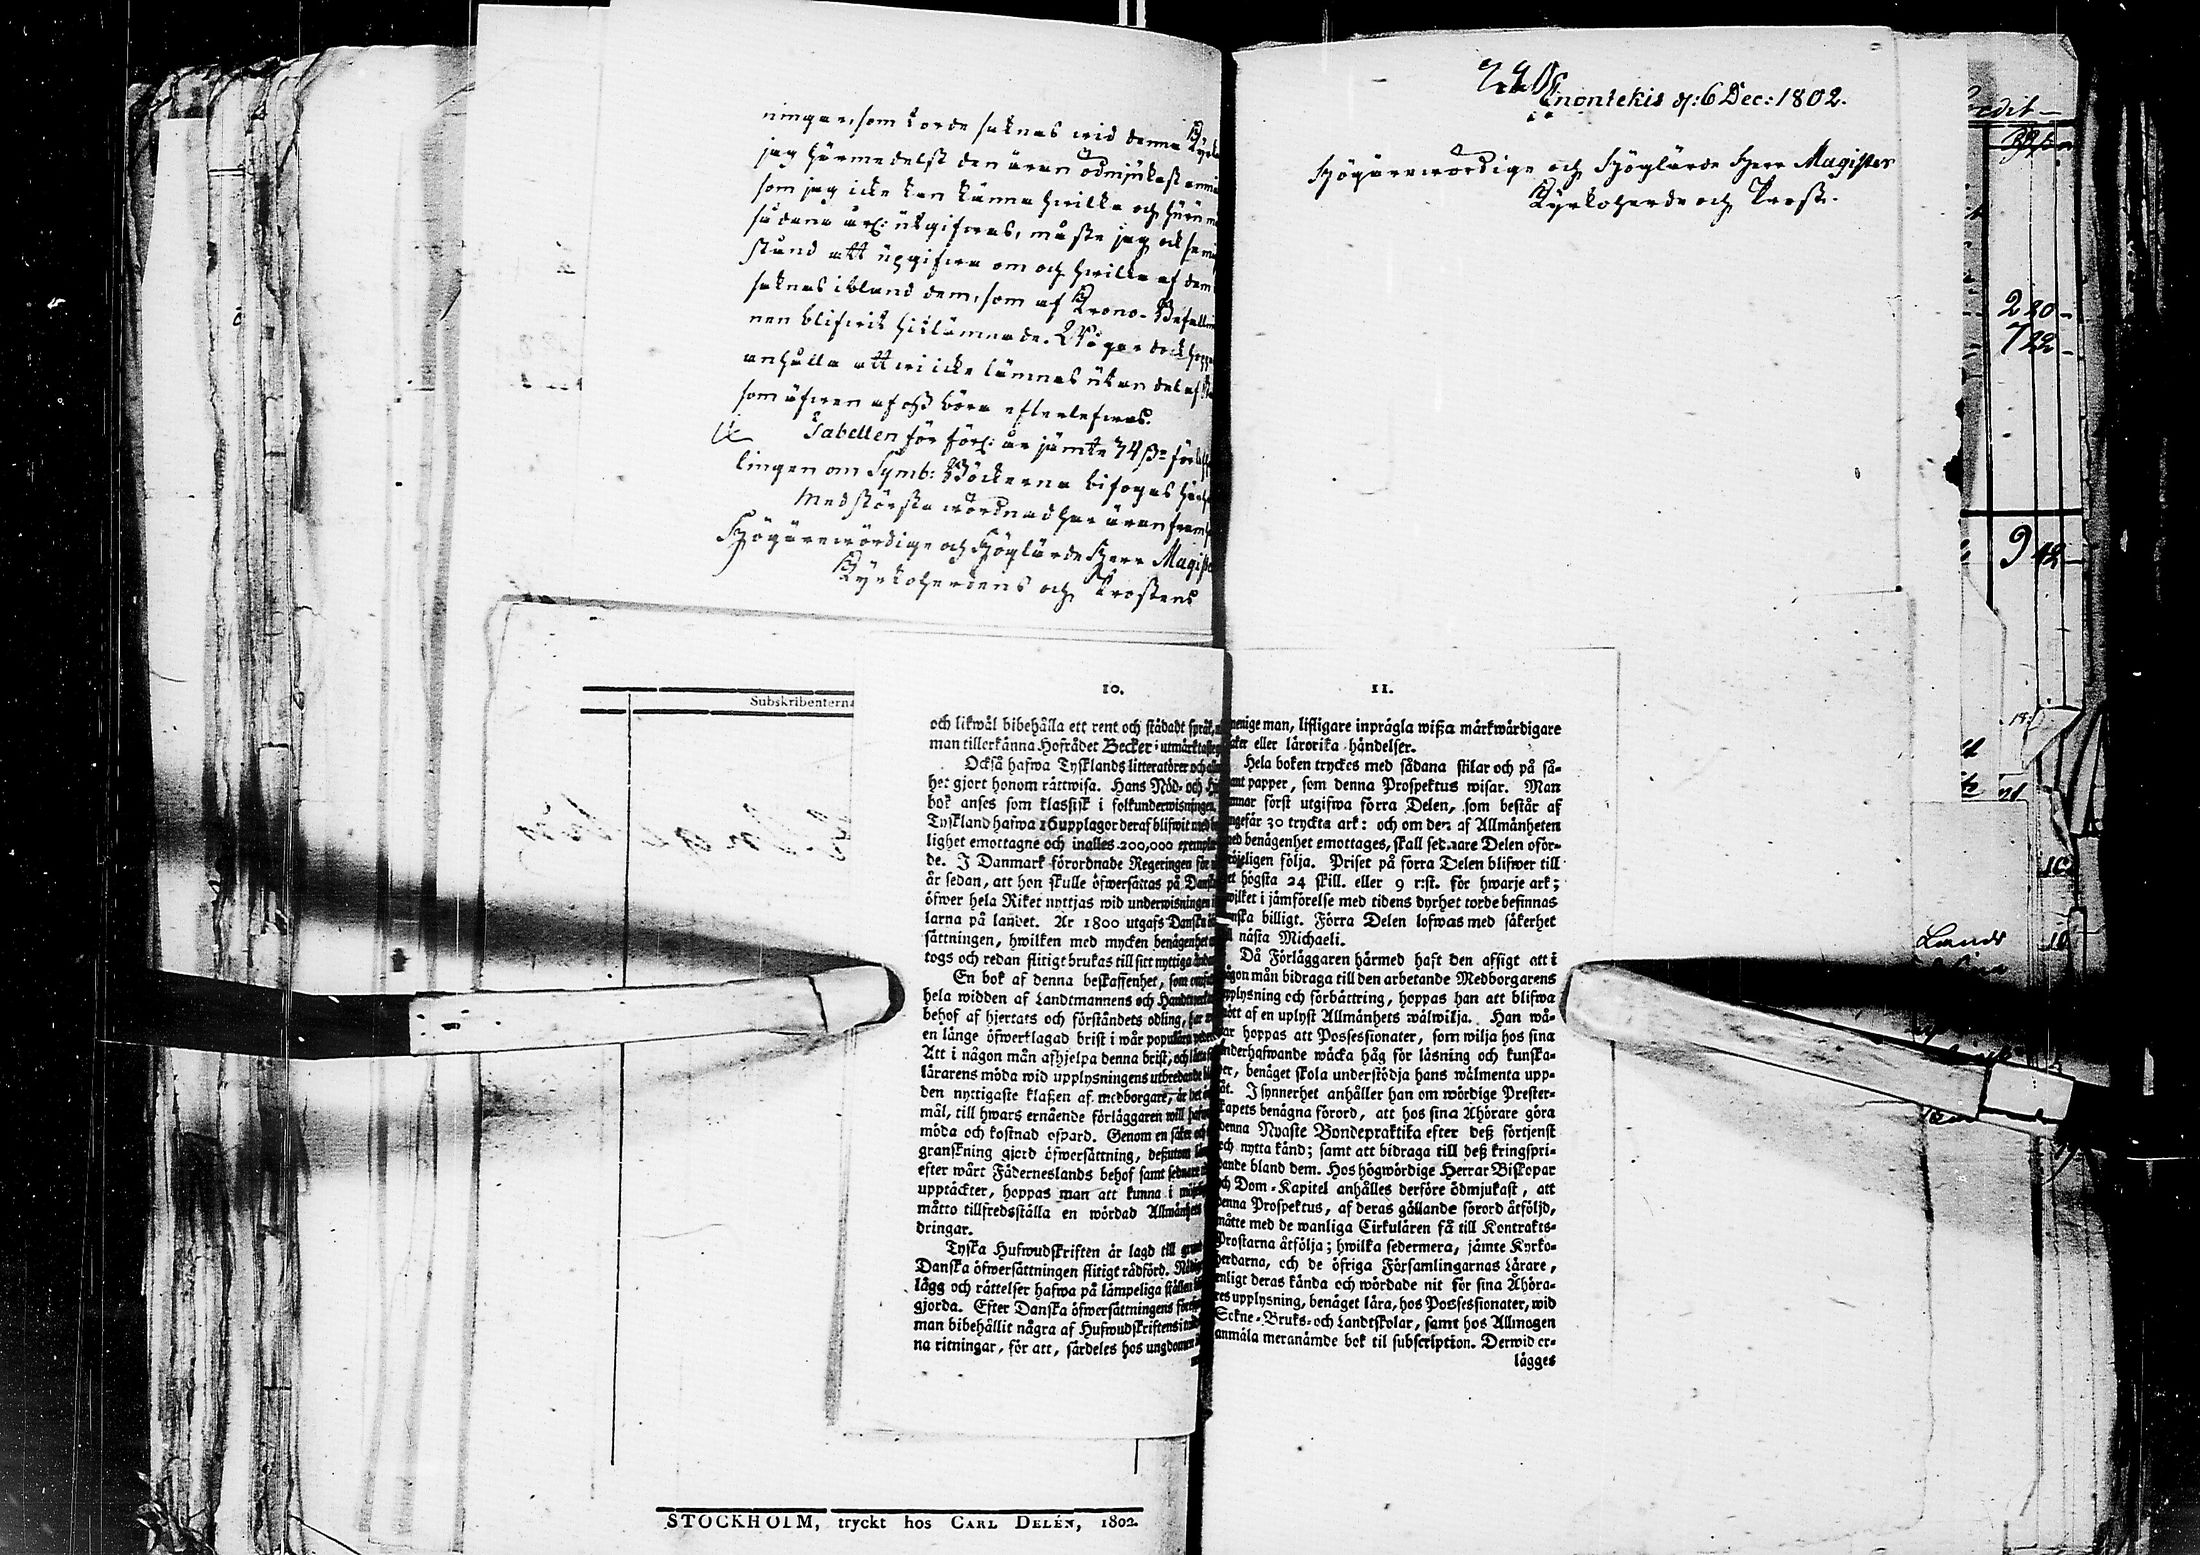 ningar, som torde saknas wid denna Kyrko
jag härmedelst den äran ödmjukast anmä
som jag icke kan känna hwilka och huru må
sådana årl: utgifwas, måste jag ock se mig
stånd att upgifwa om och hwilka af dem
saknas ibland dem, som af Krono-Befallni
nen blifwit hitlämnade. Wågar dock hopp
anhålla att wi icke lämnas utan del af
som äfwen af oss böra efterlefwas.
Tabellen för förl: år jämte 34 ßr förkl
lingen om Symb: Böckerna bifogas här
Med största wördnad har äran fram
Högärewördige och Höglärde Herr Magist
Kyrkoherdens och Prostens
Enontekis d: 6 Dec: 1802.
Högärewördige och Höglärde Herr Magister
Kyrkoherde och Prost.
Credit
220
722
942
Lands
Subskribenterna
10.
och likwål bibehålla ett rent och städadt språk,
man tillerkänna Hofrådet Becker:
Också hafwa Tysklands litteratörer och
het gjort honom rättwisa. Hans Nöd- och
bok anses som klassisk i folkunderwisningen.
Tyskland hafwa 16 upplagor deraf blifwit
lighet emottagne och inalles 200,000
de. I Danmark förordnade Regeringen för
år sedan, att hon skulle öfwersättas på Danska
öfwer hela Riket nyttjas wid underwisningen
larna på landet. År 1800 utgafs Danska
sättningen, hwilken med mycken benägenhet
togs och redan flitigt brukas till sitt nyttiga
En bok af denna beskaffenhet, som
hela widden af Landtmannens och
behof af hjertats och förståndets odling,
en länge öfwerklagad brist i wår
Att i någon mån afhjelpa denna brist, och
lärarens möda wid upplysningens utbredande
den nyttigaste klaßen af medborgare, är det
mål, till hwars ernående förläggaren will
möda och kostnad ospard. Genom en säker och
granskning gjord öfwersättning, deßutom
efter wårt Fäderneslands behof samt sednare
upptäckter, hoppas man att kunna i
måtto tillfredsställa en wördad Allmänhets
dringar.
Tyska Hufwudskriften är lagd till grund
Danska öfwersättningen flitigt rådförd.
lägg och rättelser hafwa på lämpeliga ställen
gjorda. Efter Danska öfwersättningens
man bibehållit några af Hufwudskriftens
na ritningar, för att, särdeles hos ungdomen
11.
menige man, lifligare inprägla wißa märkwärdigare
saker eller lärorika händelser.
Hela boken tryckes med sådana stilar och på så-
dant papper, som denna Prospektus wisar. Man
ämnar först utgifwa förra Delen, som består af
ungefär 30 tryckta ark: och om den af Allmänheten
med benägenhet emottages, skall sednare Delen oför-
töjeligen följa. Priset på förra Delen blifwer till
det högsta 24 skill. eller 9 r:st. för hwarje ark;
hwilket i jämförelse med tidens dyrhet torde befinnas
ganska billigt. Förra Delen lofwas med säkerhet
till nästa Michaeli.
Då Förläggaren härmed haft den afsigt att i
någon mån bidraga till den arbetande Medborgarens
upplysning och förbättring, hoppas han att blifwa
mött af en uplyst Allmänhets wälwilja. Han wå-
gar hoppas att Possessionater, som wilja hos sina
underhafwande wäcka håg för läsning och kunska-
per, benäget skola understödja hans wälmenta upp-
såt. I synnerhet anhåller han om wördige Prester-
skapets benägna förord, att hos sina Åhörare göra
denna Nyaste Bondepraktika efter deß förtjenst
och nytta känd; samt att bidraga till deß kringspri-
dande bland dem. Hos högwördige Herrar Biskopar
och Dom-Kapitel anhålles derföre ödmjukast, att
denna Prospektus, af deras gällande förord åtföljd,
måtte med de wanliga Cirkulären få till Kontrakts-
Prostarna åtfölja; hwilka sedermera, jämte Kyrko-
herdarna, och de öfriga Församlingarnas Lärare,
enligt deras kända och wördade nit för sina Åhöra-
res upplysning, benäget lära, hos Possessionater, wid
Sckne-Bruks- och Landtskolar, samt hos Allmogen
anmäla meranämde bok til subscription. Derwid er-
lägges
STOCKHOLM, tryckt hos CARL DELÉN, 1802.